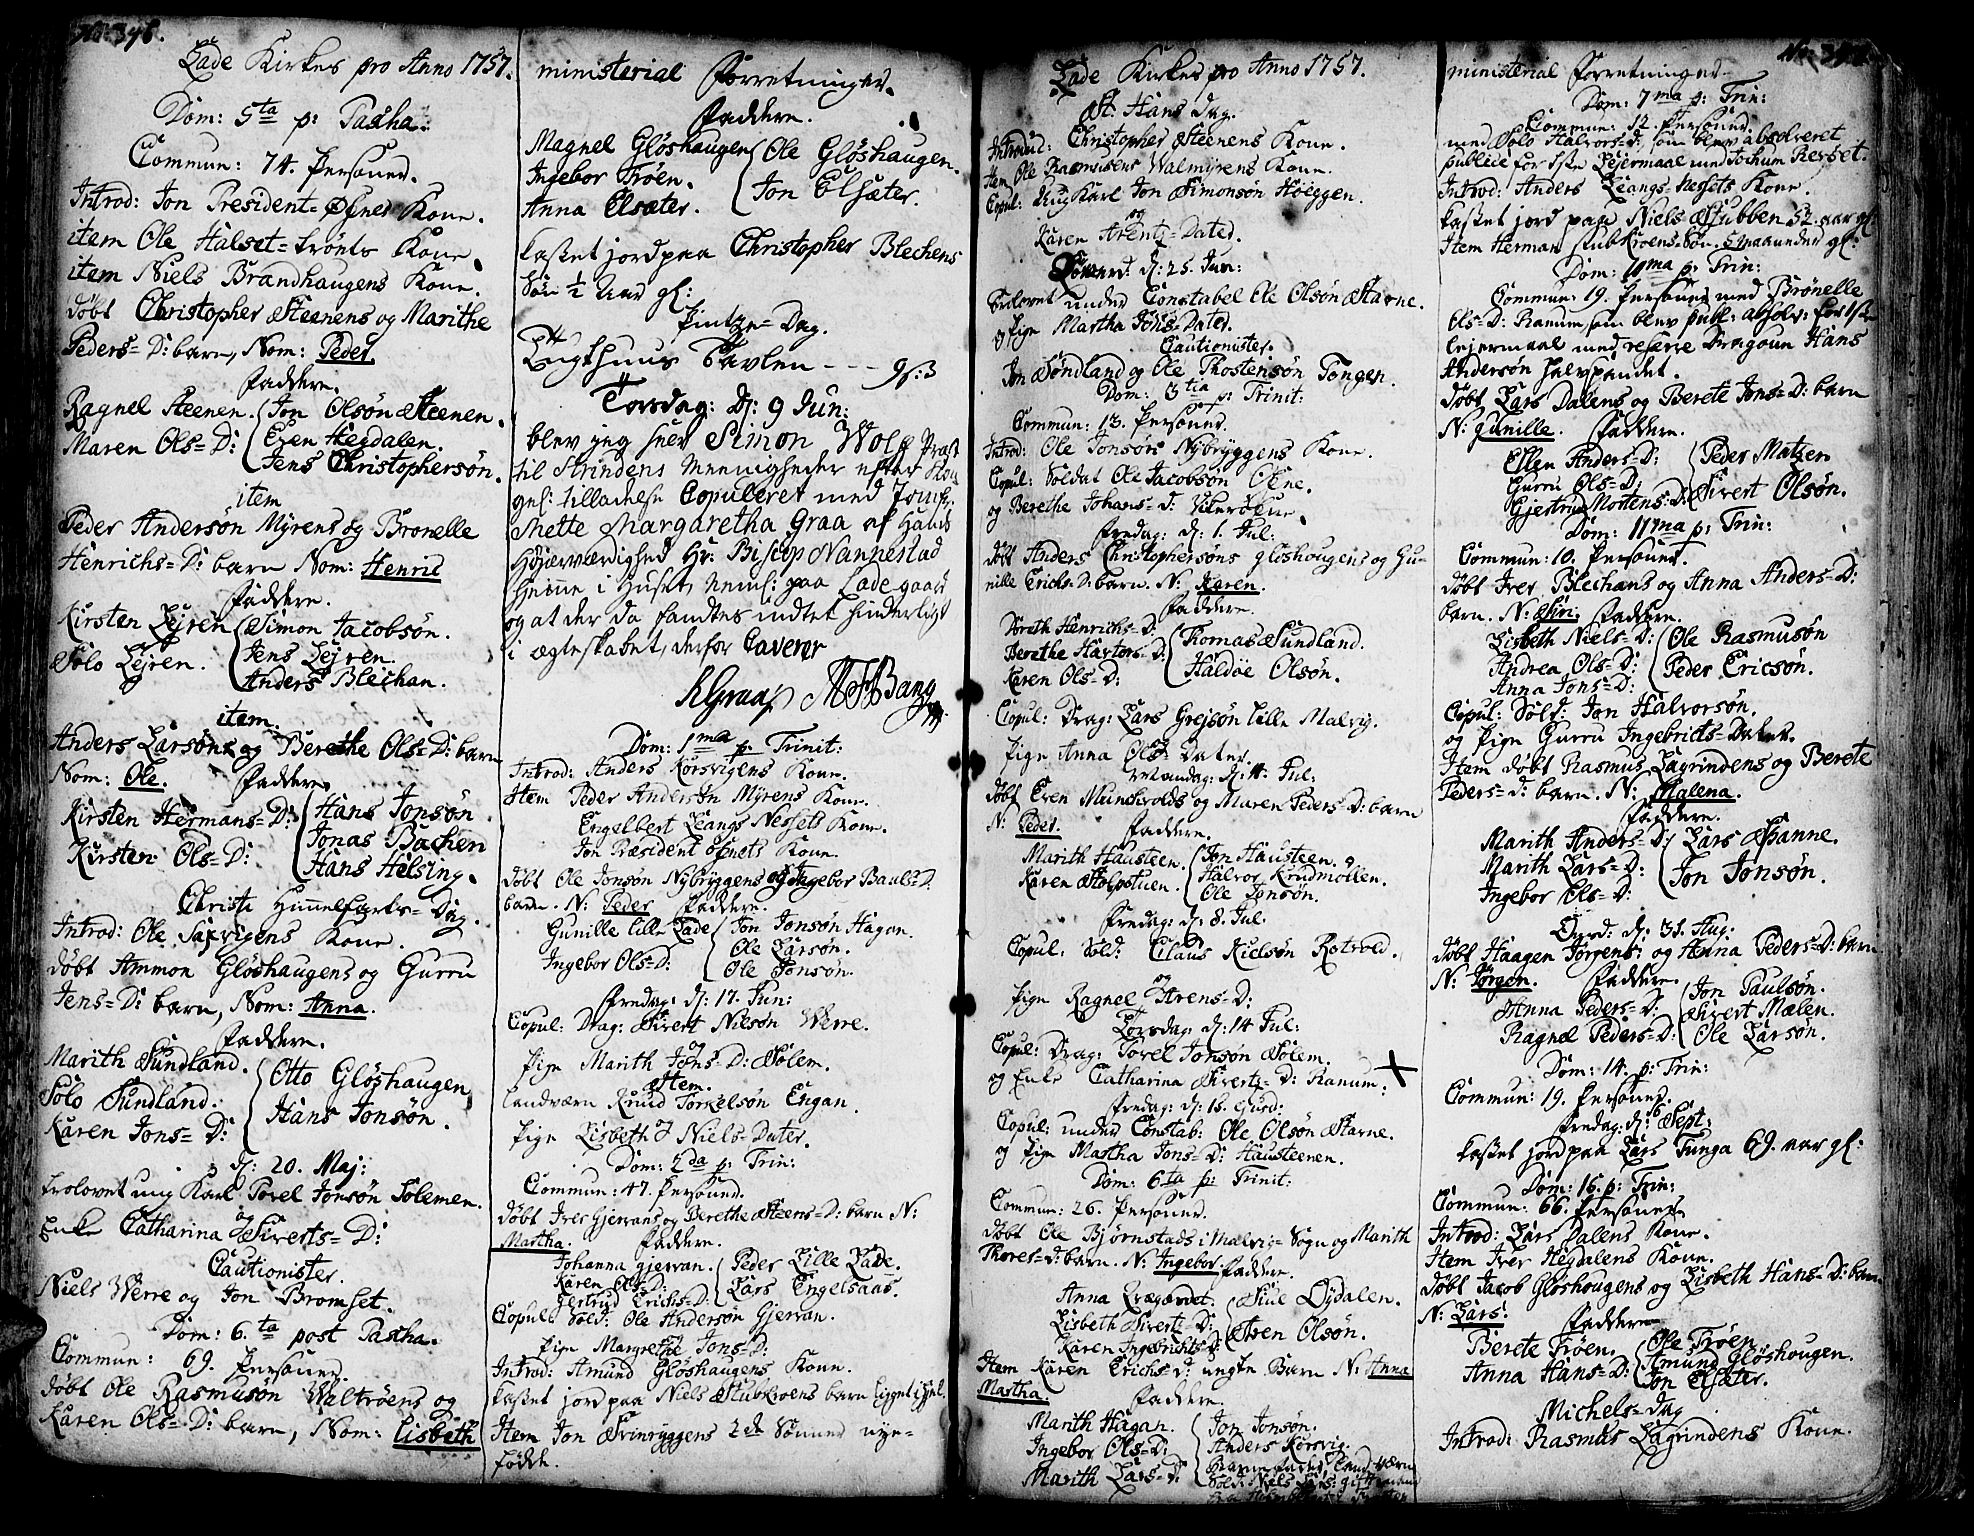 No: 346.
Lade Kirkes pro Anno 1757.
Dom: 5ta p: Pascha:
Commun: 74. Personer.
Introd: Jon President=Øfnes Kone.
item Ole Halset=trönts Kone.
item Niels Brandhaugens Kone.
döbt Christopher Steenens og Marithe
Peders=D: barn, Nom: Peder.
Faddere.
Ragnel Steenen. Jon Olsön Steenen.
Maren Ols=D: Even Hegdalen.
Jens Christophersön.
item
Peder Andersön Myrens og Bronelle
Henrichs=D: barn Nom: Henric
Faddere.
Kirsten Lejren Simon Jacobsön.
Solo Lejren. Jens Lejren.
Anders Blechan.
item.
Anders Larsöns og Berethe Ols=D: barn
Nom: Ole. Faddere.
Kirsten Hermans=D: Hans Jonsön.
Kirsten Ols=D: Jonas Bachen
Hans Helsing.
Christi Himmelfarts=Dag.
Introd: Ole Saxvigens Kone.
döbt Ammon Glöshaugens og Gurru
Jens=D: barn, Nom: Anna.
Faddere.
Marith Sundland. Otto Glöshaugen
Solo Sundland. Hans Jonsön.
Karen Jons=D:
d: 20. Maj:
trolovet ung Karl Torel Jonsön Solemen.
og
Enke Catharina Siverts=D:
Cautionister.
Niels Werre og Jon Bromset.
Dom: 6.ta post Pascha.
Commun: 69. Personer.
döbt Ole Rasmusön Waltröens og
Karen Ols=D: barn, Nom: Lisbeth
ministerial Forretninger.
Faddere.
Magnel Glöshaugen Ole Glöshaugen.
Ingebor Troen. Jon Elsæter.
Anna Elsæter.
kastet jord paa Christopher Blechens
Sön 1/2 Aar gl:
Pintze=Dag.
Tugthuus Tavlen - - - 9/:3
Torsdag: D: 9 Jun:
blev jeg Simon Wolf Præst
til Strindens Menigheder efter
tilladelse Copuleret med Jomfr.
Mette Margaretha Graa af Hands
Höjærværdighed Hr: Biscop Nannestad
hiemme i Huset paa Lade gaard
og at der da fandtes indtet hinderligt
i ægteskabet, derfor Caverer
RGraa MFBang
Dom: 1ma p: Trinit:
Introd: Anders Korsvigens Kone.
Item Peder Andersön Myrens Kone.
Engelbert Leangs Nessets Kone.
Jon Præsident öfnets Kone.
döbt Ole Jonsön Nybryggens og Ingebor Pauls=D.
barn. N: Peder Faddere.
Gunille lille Lade Jon Jonsön Hagan.
Ingebor Ols=D: Ole Larsön.
Ole Jonsön.
Fredag: d: 17. Jun:
Copul: Drag: Sivert Nilsön Werre.
og
Pige Marith Jons=D: Solem.
Item.
Landværn Knud Torkelsön Engan.
og
Pige Lisbeth Niels=Dater.
Dom: 2da p: Trin:
Commun: 47. Personer.
döbt Iver Gjervans og Berethe Steens=D: barn N:
Martha. Faddere.
Johanna Gjervan. Peder Lille Lade.
Karen Ols=D: Lars Engelsaas.
Gertrud Erichs=D:
Copul: Sold: Ole Andersön Gjervan.
Pige Margrethe Jons=D:
Introd: Amund Glöshaugens Kone.
kastet jord paa Niels Stubkroens barn
Item Jon nye=
födde.
Lade Kirkes pro Anno 1757.
St. Hans Dag.
Introd: Christopher Steenens Kone.
Item Ole Rasmusens Walmyrens Kone.
Copul: Ung Karl Jon Simonsön Höeggen.
og
Karen Arentz=Dater.
d: 25. Jun:
Trolovet under Constabel Ole Olsön Starne.
og Pige Martha Jöns=Dater.
Cautionister.
Jon Söndland og Ole Thostensön Tongen.
Dom: 3tia p: Trinit:
Commun: 13. Personer.
Introd: Ole Jonsöns Nybryggens Kone.
Copul: Soldat Ole Jacobsön
og Berethe Johans=D:
Fredag: d: 1. Jul:
döbt Anders Christophersöns glöshougens og Gu=
nille Erichs=D: barn. N: Karen.
Faddere.
Doreth Henrichs=D: Thomas Sundland.
Berethe D: Haldoe Olsön.
Karen Ols=D:
Copul: Drag: Lars Grejsön Lille Malvig.
Pige Anna Ols Dater
Mandag: d: 4. Jul:
döbt Even Munchvolds og Maren Peders=D: barn
N: Peder. Faddere.
Marith Hausteen. Jon Hausteen.
Karen Stolpstuen. Halvor Krudmöllen.
Ole Jonsön.
Fredag: d: 8. Jul:
Copul: Sold: Claus Nielsön Rotvold.
og
Pige Ragnel Arens=D:
Torsdag: d: 14 Jul:
Copul: Drag: Torel Jonsön Solem.
og Enke Catharina Sivertz=D: Ranum.
Fredag: d: 15.
Copul: under Constab: Ole Olsön Starne.
og Pige Martha Jons=D: Hausteenen.
Dom: 6ta p: Trinit:
Commun: 26. Personer.
Döbt Ole Bjørnstads i Malvig=Sogn og Marith
Thores=D: barn. N: Ingebor. Faddere.
Anna Siul Oydalen.
Lisbeth Sivertz=D: Aren Olsön.
Karen Ingebrichts=D:
Item Karen Erichs=D: ungte Barn N: Anna
Martha. Faddere.
Marith Hagan. Jon Jonsön.
Ingebor Ols=D: Anders Korsvig.
Marith Lars=D:
ministerial Forretninger.
Dom: 7ma p: Trin:
Commun: 12. Personer.
med Solo Halvors=D: som blev absolveret
publice for 1ste Lejermaal med Jochum Revset.
Introd: Anders Leangs Nessets Kone.
kastet jord paa Niels Stubben 52. aar gl:
Item Herman stubkroens Sön. 5 maaneder gl:
Dom: 10ma p: Trin:
Commun: 19. Personer med Brönelle
Ols=D: Ranum, som blev publ: absolv: for 1ste
lejermaal med reserve Dragoun Hans
Andersön halvpundet.
döbt Lars Dalens og Berete Jons=D: barn
N: Gunille. Faddere.
Ellen Anders=D: Peder Matzen
Gurru Ols=D: Sivert Olsön.
Gjertrud Mortens=D:
Dom: 11ma p: Trin:
Commun: 10. Personer.
döbt Iver Blechans og Anna Anders=D:
barn. N: Siri. Faddere.
Lisbeth Niels=D: Ole Rasmusön
Andrea Ols=D: Peder Ericsön.
Anna Jons=D:
Copul: Sold: Jon Halvorsön.
og Pige Gurru Ingebricts=Dater.
Item döbt Rasmus Lagrindens og Berete
Peders=D: barn. N: Malena.
Faddere.
Marith Anders=D: Lars Spanne.
Marith Lars=D: Jon Jonsön.
Ingebor Ols=D:
Onsd: d: 31. Aug:
döbt Haagen Jørgens: og Anna Peders=D: barn
N: Jörgen. Faddere.
Anna Peders=D: Jon Paulsön.
Ragnel Peders=D: Sivert Mælen.
Ole Larsön.
Dom: 14. p: Trin:
Commun: 19. Personer.
Fredag: d: 16 Sept:
kastet jord paa Lars Tunga 69. aar gl:
Dom: 16. p: Trin:
Commun: 66. Personer.
Introd: Lars Dalens Kone.
Item Iver Hegdalens Kone.
döbt Jacob Glöshougens og Lisbeth Hans=D: barn
N: Lars. Faddere
Berete Tröen. Ole Tröen.
Anna Hans=D: Amund Glöshougen.
Jon Elsæter.
Michels=Dag
Introd: Rasmus Lagrindens Kone.